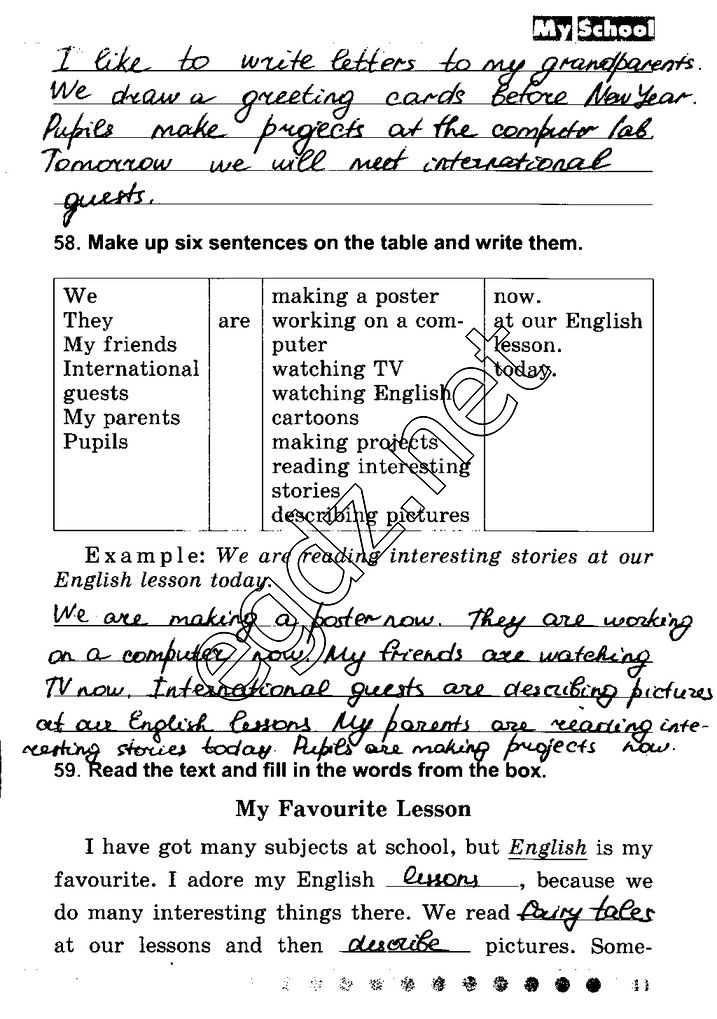 My School
I like to write letters to my grandparents.
We draw a greeting cards before New Year.
Pupils make projects at the computer lab.
Tomorrow we will meet international
guests.
58. Make up six sentences on the table and write them.
We
They
My friends
International
guests
My parents
Pupils
are
making a poster
working on a com-
puter
watching TV
watching English
cartoons
making projects
reading interesting
stories
describing pictures
now.
at our English
lesson.
today.
Example: We are reading interesting stories at our
English lesson today.
We are making a poster now. They are working
on a computer now. My friends are watching
TV now. International guests are describing pictures
at our English lessons My parents are reading inte-
resting stories today. Pupils are making projects now.
59. Read the text and fill in the words from the box.
My Favourite Lesson
I have got many subjects at school, but English is my
favourite. I adore my English lessons, because we
do many interesting things there. We read fairy tales
at our lessons and then describe pictures. Some-
egdz.net